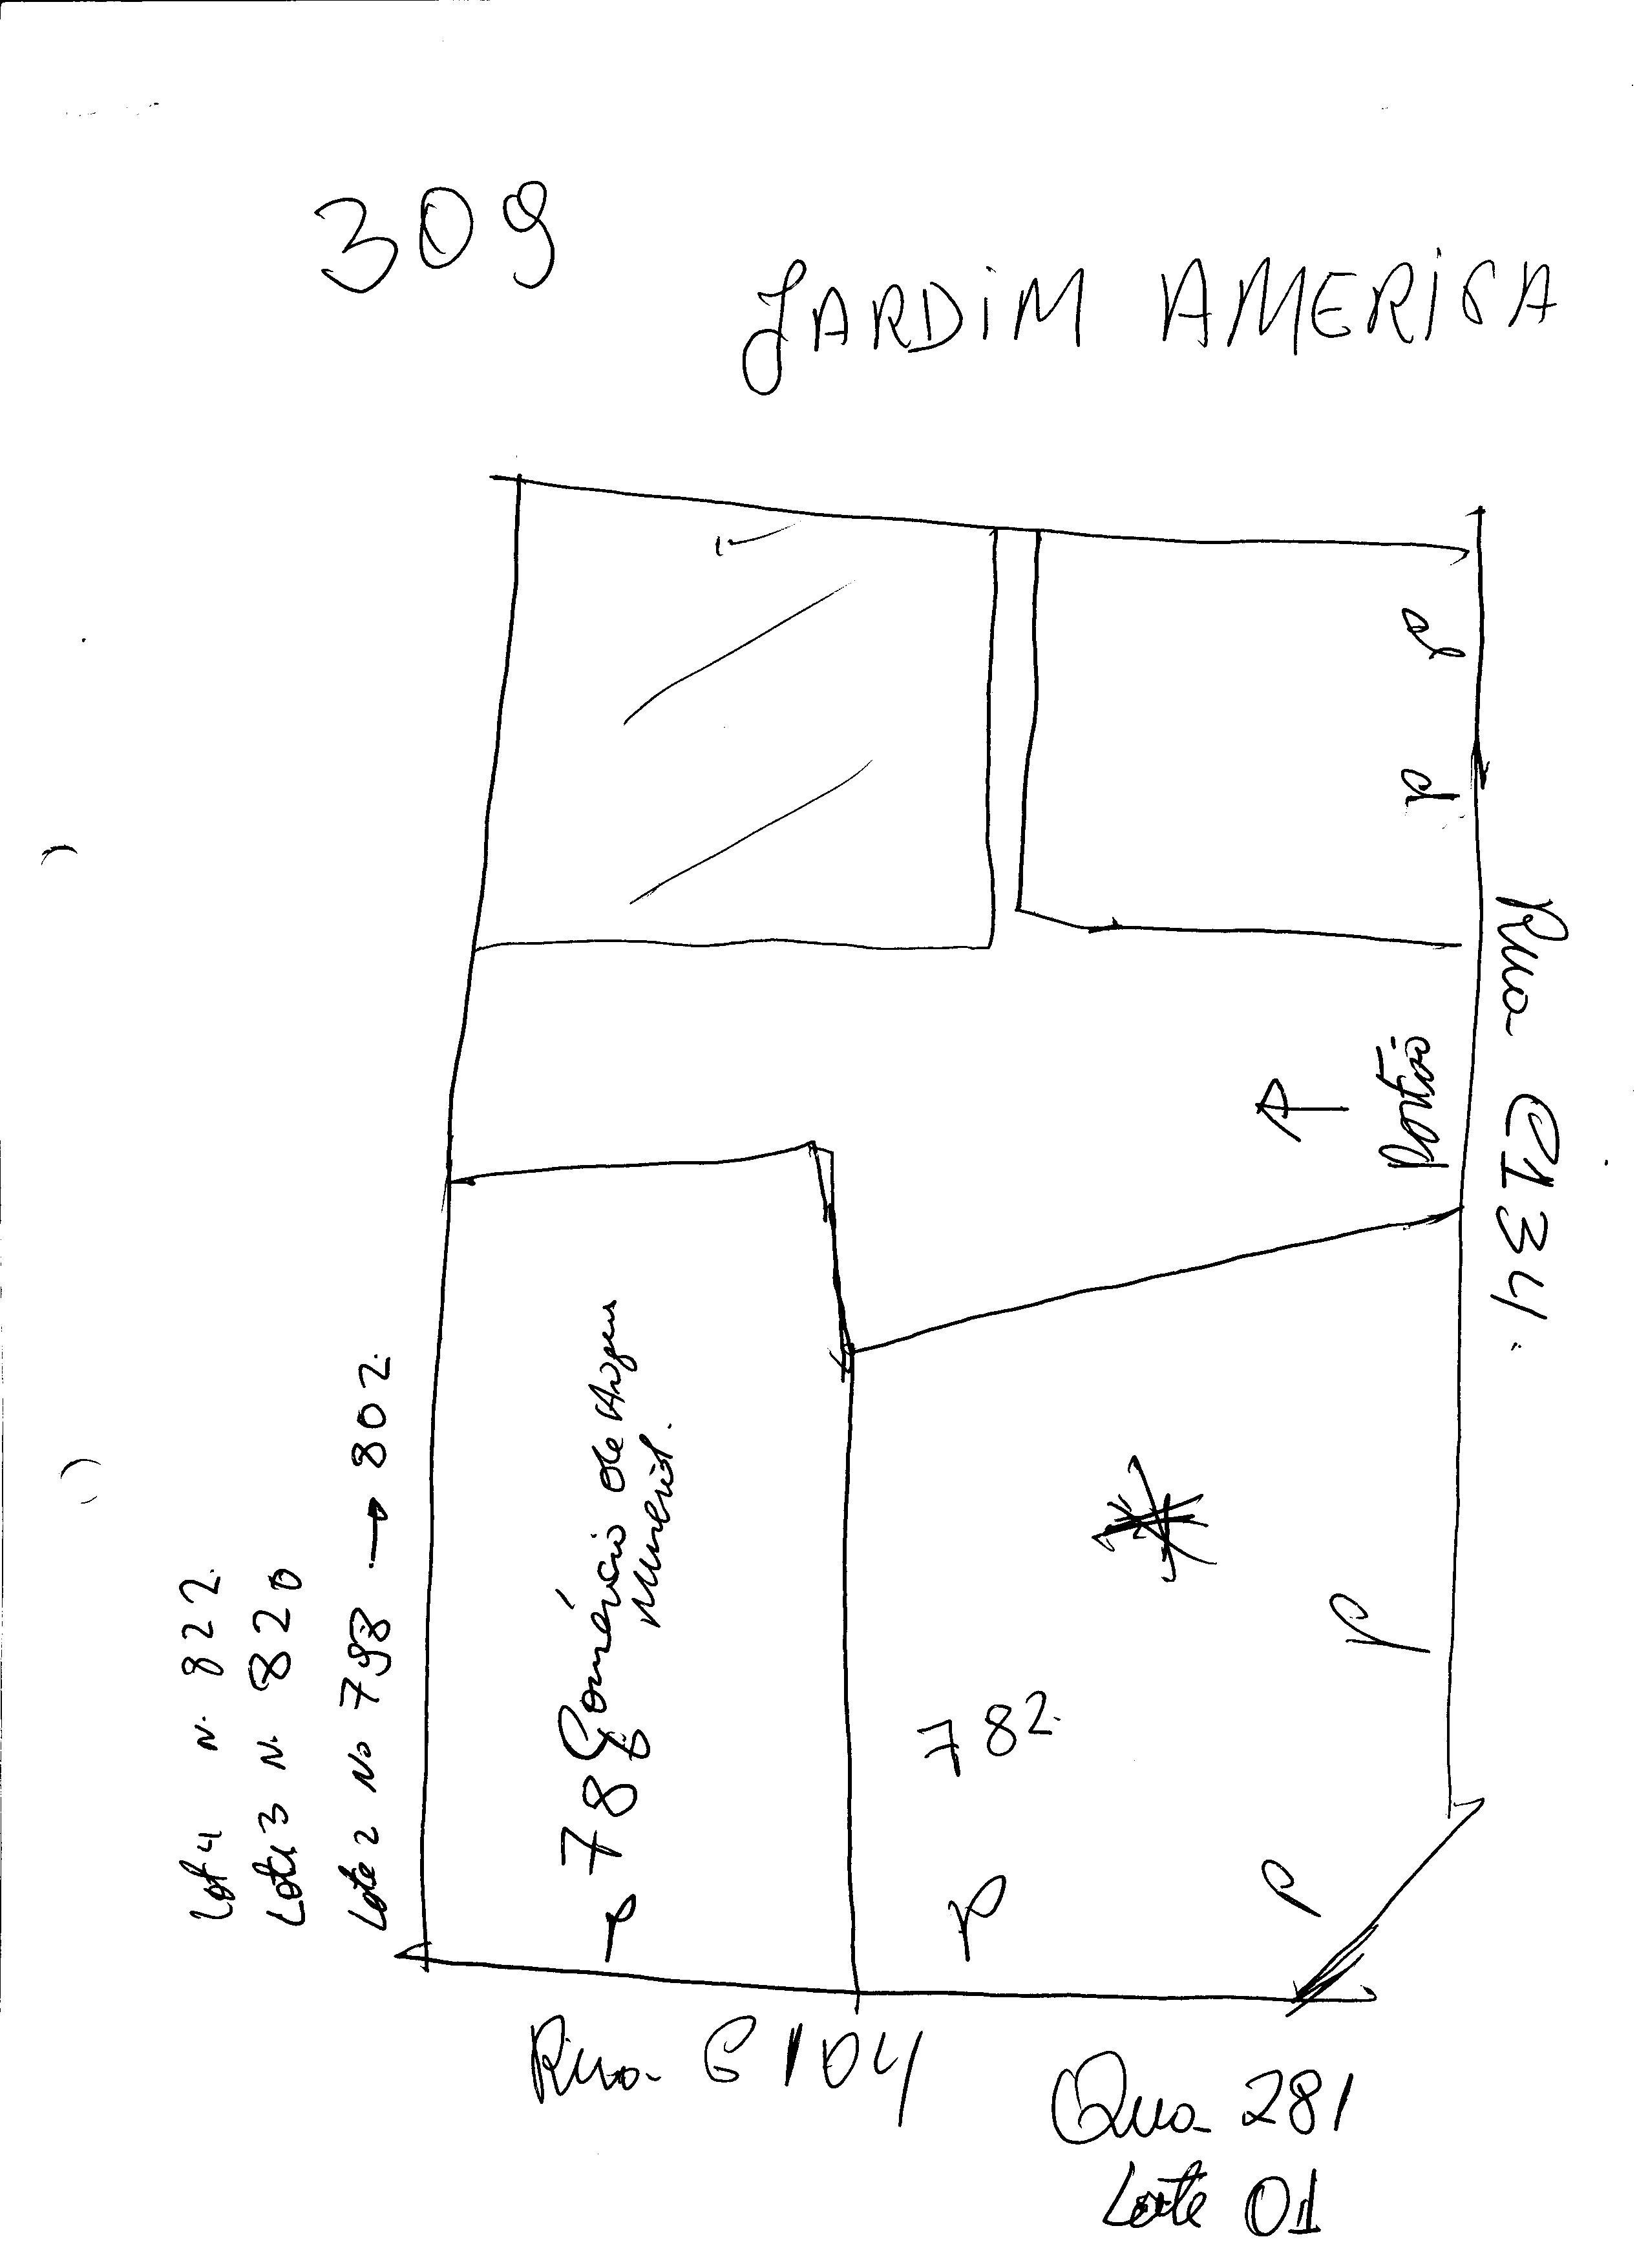 309
JARDiM AMERiCA
P
P
Rua C134.
Portão
Lot 4 N. 822.
Lote 3 N. 820
Lote 2 No 798 → 802.
Comércio de
Mineral.
788
782.
P
P
P
P
Rua C104
Qua 281
Lote 01